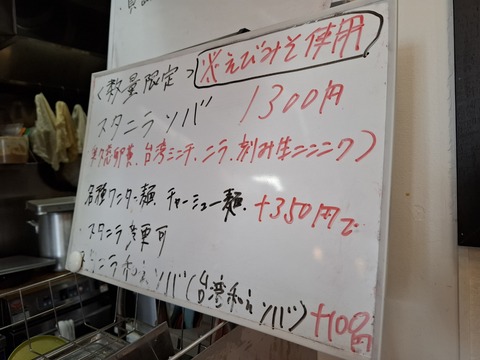 ※えびみそ使用
<数量限定>
スタミラソバ 1300円
台湾ミンチ、ニラ、刻み生ニンニク)
各種ワンター麺、チャーシュー麺、+350円で
スタミラ変更可
ニラ和えソバ(台湾和えソバ)